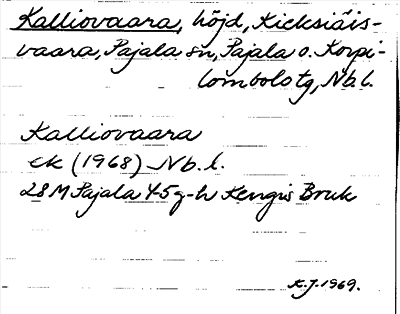 Kalliovaara, höjd, Kieksiäis-
vaara, Pajala sn, Pajala o. Korpi-
lombolo tg, Nb.l.
Kalliovaara
ek (1968) Nb.l.
28M Pajala 4-5 g-h Kengis Bruk
K.J. 1969.